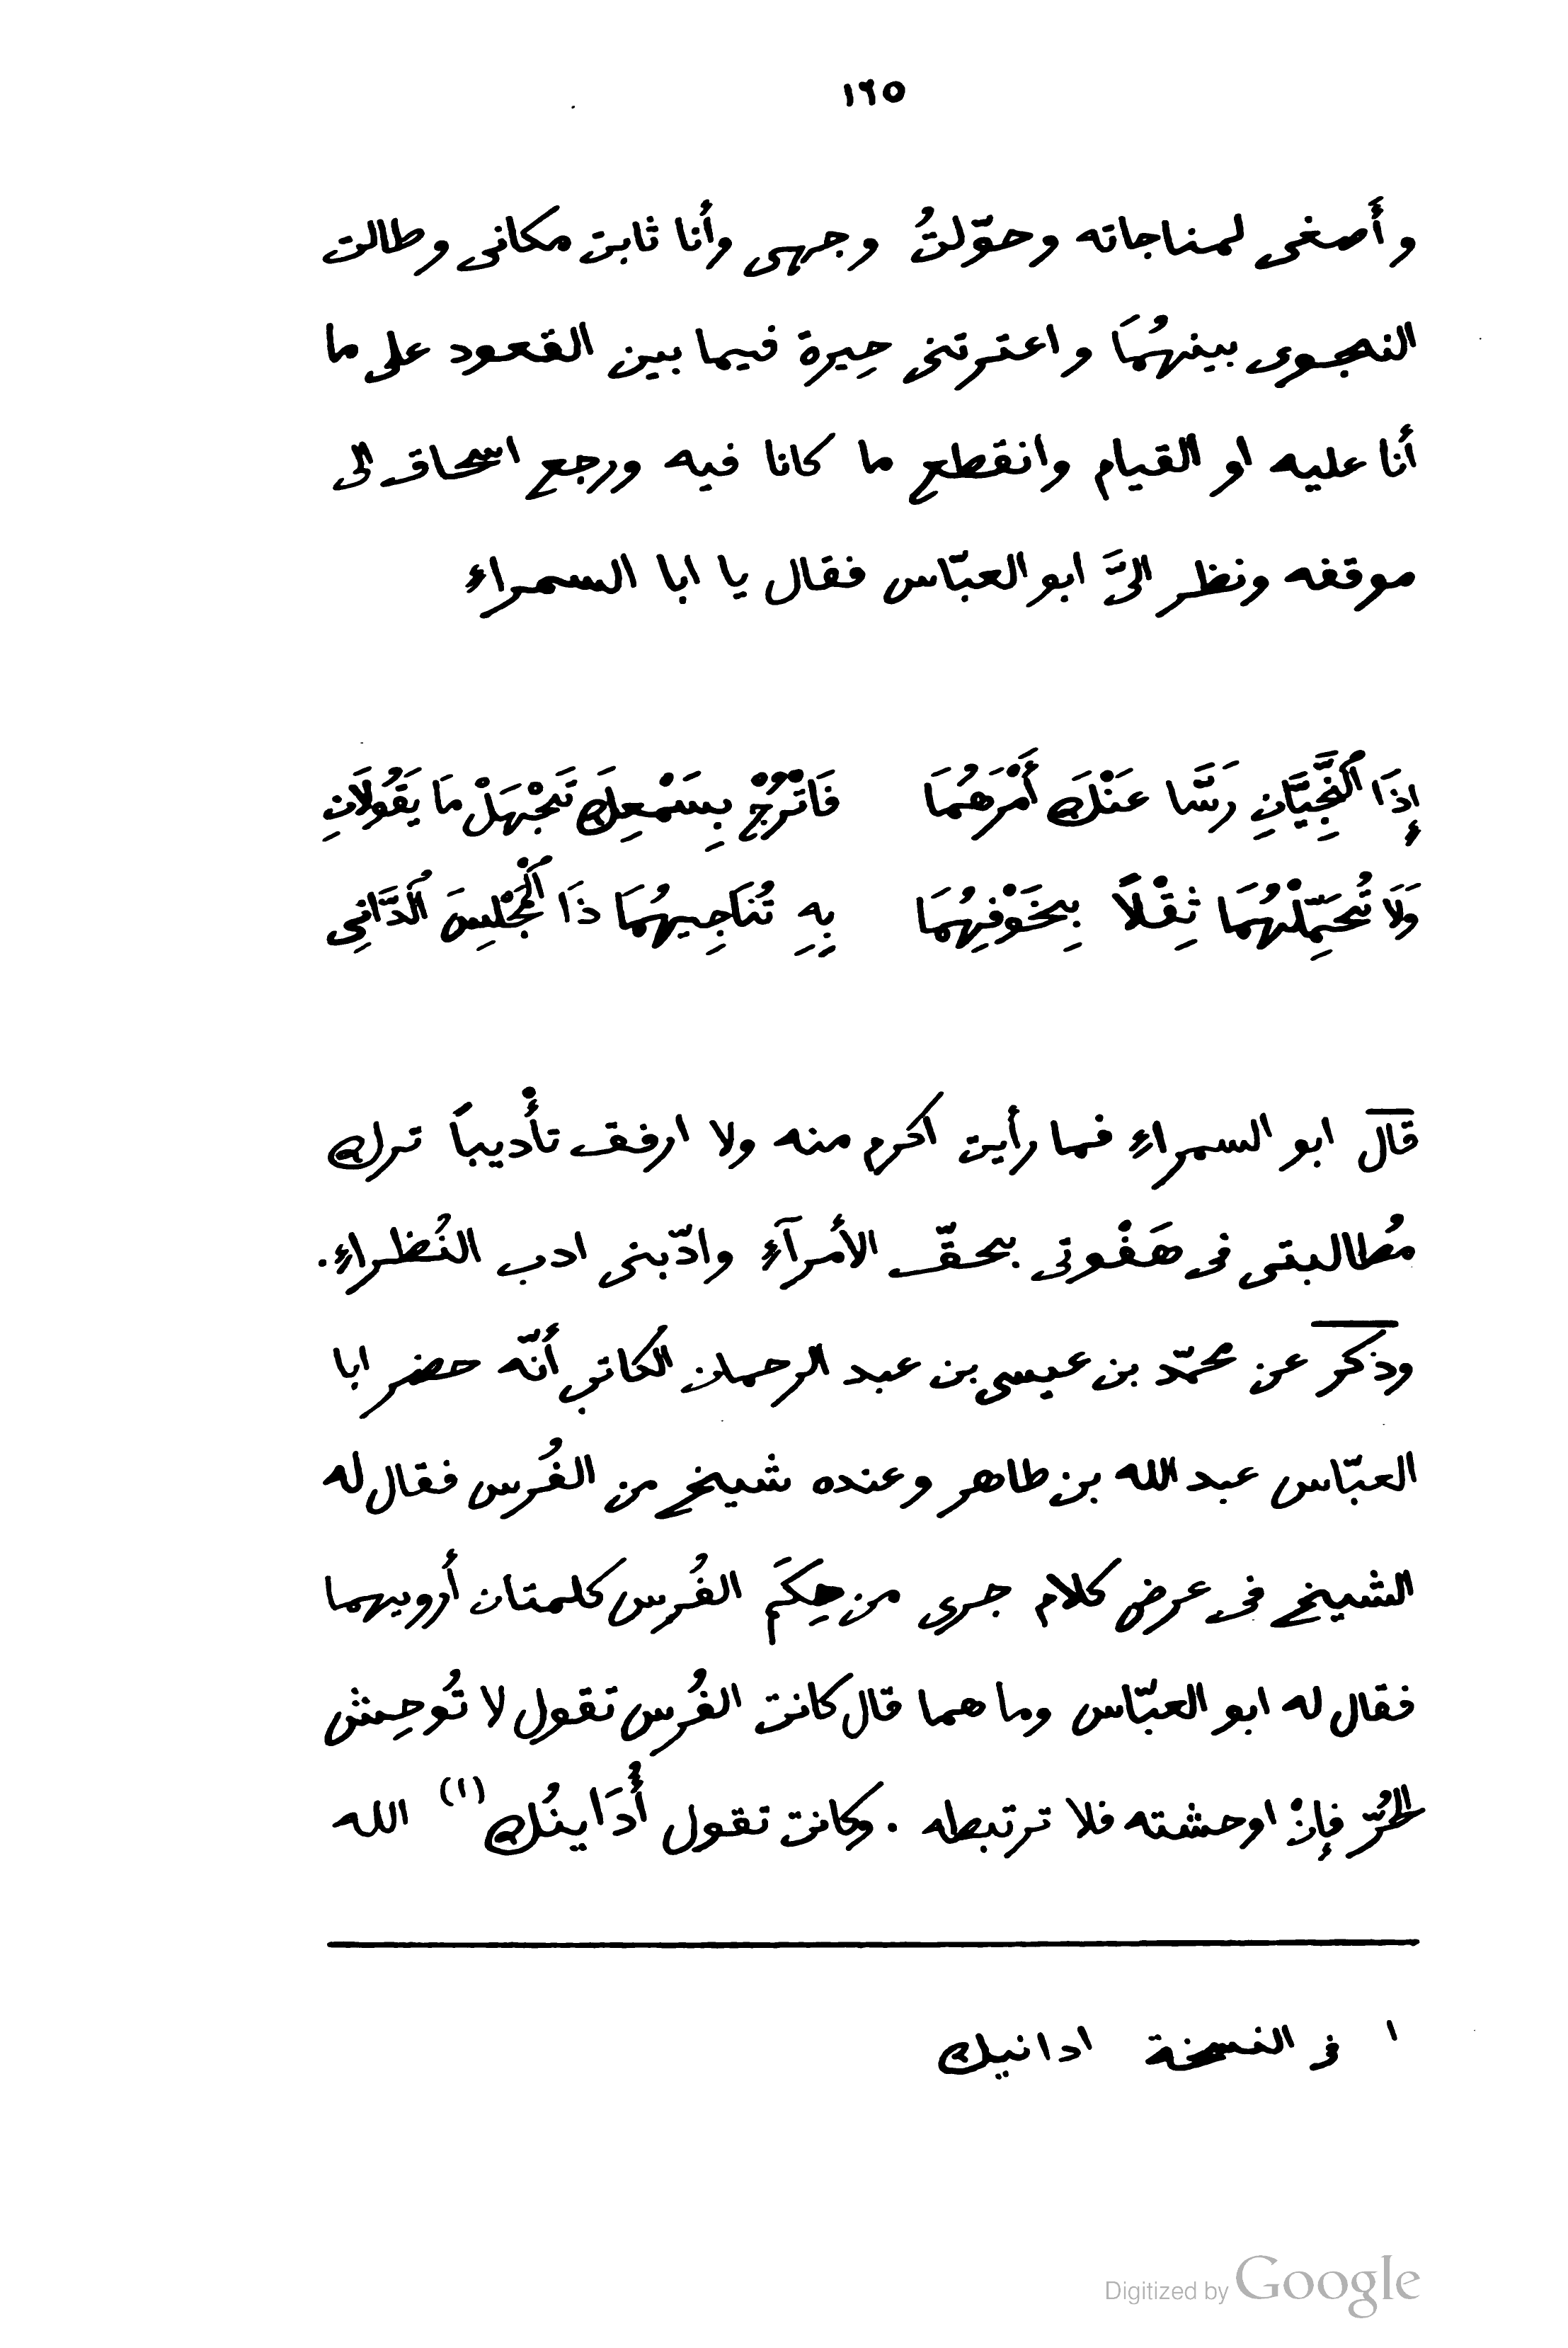 ١٦٥
وأَصغى لمناجاته وحوّلتُ وجهى وأنا ثابت مكانى وطالت
النجوى بينهُمَا واعترتنى حِيرة فيما بين القعود على ما
أنا عليه او القيام وانقطع ما كانا فيه ورجع اسحاق الى
موقفه ونظر الىَّ ابو العبّاس فقال يا ابا السمراء
إِذَا ٱلنَّجِيَّانِ رَسَّا عَنْكَ أَمْرَهُمَا فَٱنْزُحْ بِسَمْعِكَ تَجْهَلْ مَا يَقُولَانِ
وَلَا تُحَمِّلْهُمَا ثِقْلًا بِخَوْفِهِمَا بِهِ تُنَاجِيهُمَا ذَا ٱلْمَجْلِسَ ٱلدَّانِى
قال ابو السمراءِ فما رأيت اكرم منه ولا ارفق تأْديباً ترك
مُطالبتى فى هَفْوتى بحقّ الأمرآءِ وادّبنى ادب النُظراءِ.
وذكر عن محمّد بن عيسى بن عبد الرحمان الكاتب أنّه حضر ابا
العبّاس عبد الله بن طاهر وعنده شيخ من الفُرس فقال له
الشيخ فى عرض كلام جرى من حِكَم الفُرس كلمتان أرويهما
فقال له ابو العبّاس وما هما قال كانت الفُرس تقول لا تُوحِش
الحُرّ فإنْ اوحشته فلا ترتبطه . وكانت تقول أُدَاينُك (١) الله
١ فى النسخة ادانيك
Digitized by Google